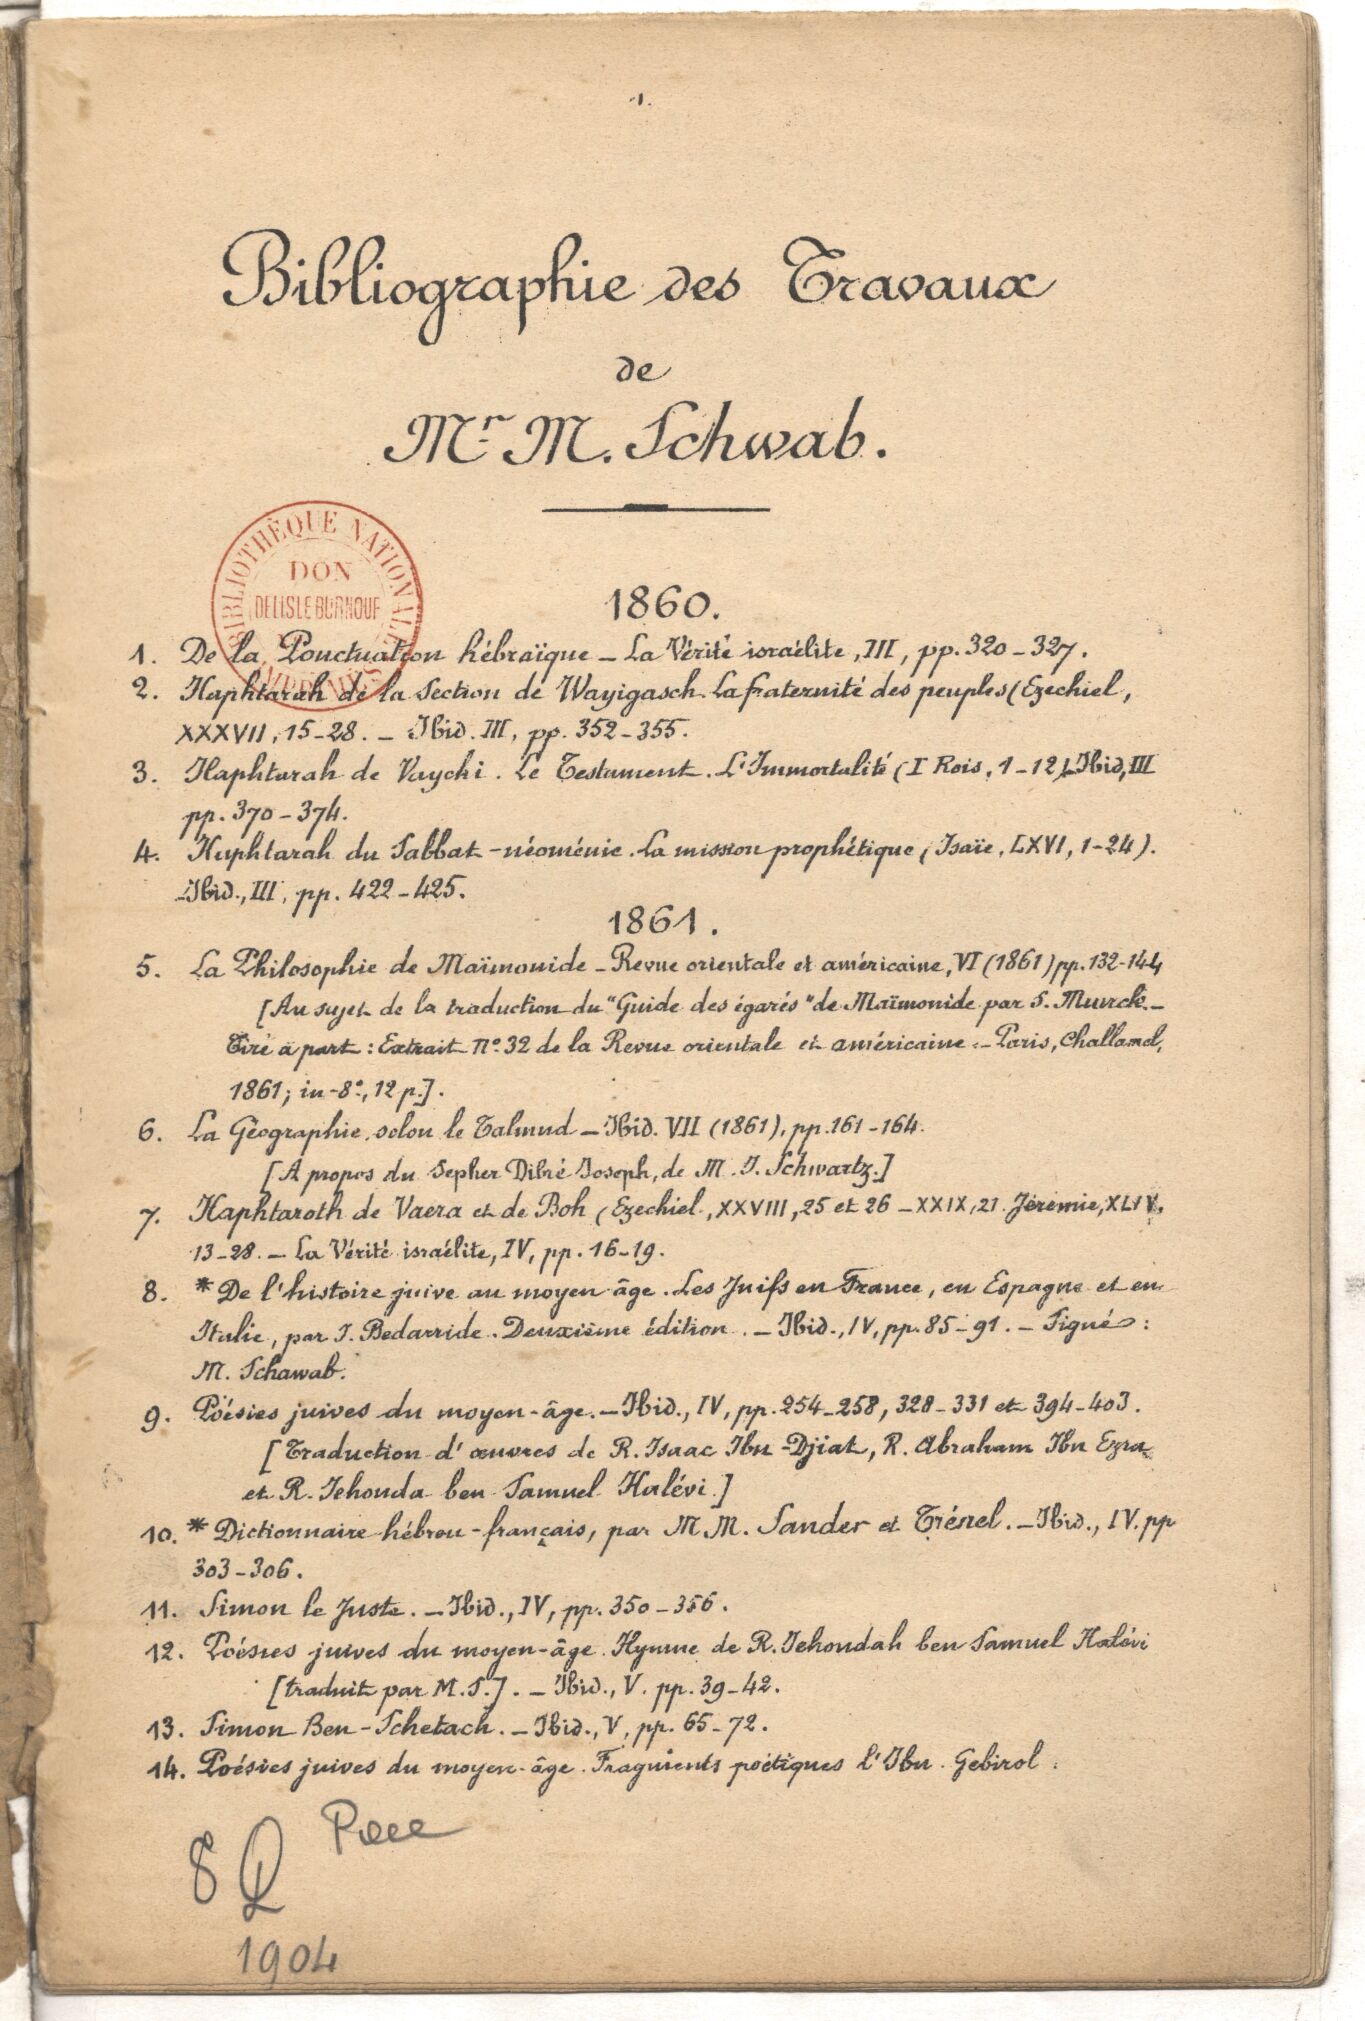 1.
Bibliographie des Travaux
de
Mr. M. Schwab.
BIBLIOTHÈQUE NATIONALE
DON
DELISLE BURNOUF
IMPRIMÉS
1860.
1. De la Ponctuation hébraïque – La Vérité israélite, III, pp. 320–327.
2. Haphtarah de la Section de Wayigasch. La fraternité des peuples (Ezechiel,
XXXVII, 15–28. – Ibid. III, pp. 352–355.
3. Haphtarah de Vaychi. Le Testament. L'Immortalité (I Rois, 1–12). Ibid, III
pp. 370–374.
4. Haphtarah du Sabbat–néoménie. La mission prophétique (Isaïe, LXVI, 1–24).
Ibid., III, pp. 422–425.
1861.
5. La Philosophie de Maïmonide – Revue orientale et américaine, VI (1861) pp. 132–144
[Au sujet de la traduction du "Guide des égarés" de Maïmonide par S. Munck. –
Tiré à part : Extrait no. 32 de la Revue orientale et américaine. – Paris, Challamel,
1861; in-8o., 12 p.].
6. La Géographie selon le Talmud – Ibid. VII (1861), pp. 161–164.
[A propos du Sepher Dibré Joseph, de M. J. Schwartz.]
7. Haphtaroth de Vaera et de Boh (Ezechiel, XXVIII, 25 et 26 – XXIX, 21. Jérémie, XLIV,
13–28. – La Vérité israélite, IV, pp. 16–19.
8. * De l'histoire juive au moyen âge. Les Juifs en France, en Espagne et en
Italie, par J. Bedarride. Deuxième édition. – Ibid., IV, pp. 85–91. – Signé :
M. Schawab.
9. Poésies juives du moyen-âge. – Ibid., IV, pp. 254–258, 328–331 et 394–403.
[Traduction d'œuvres de R. Isaac Ibn-Djiat, R. Abraham Ibn Ezra
et R. Iehouda ben Samuel Halévi.]
10. * Dictionnaire hébreu-français, par M.M. Sander et Trénel. – Ibid., IV. pp
303–306.
11. Simon le Juste. – Ibid., IV, pp. 350–356.
12. Poésies juives du moyen-âge. Hymne de R. Iehoudah ben Samuel Halévi
[traduit par M. S.]. – Ibid., V. pp. 39–42.
13. Simon Ben-Schetach. – Ibid., V, pp. 65–72.
14. Poésies juives du moyen-âge. Fragments poétiques l'Ibn Gebirol.
8 Q Pièce
1904